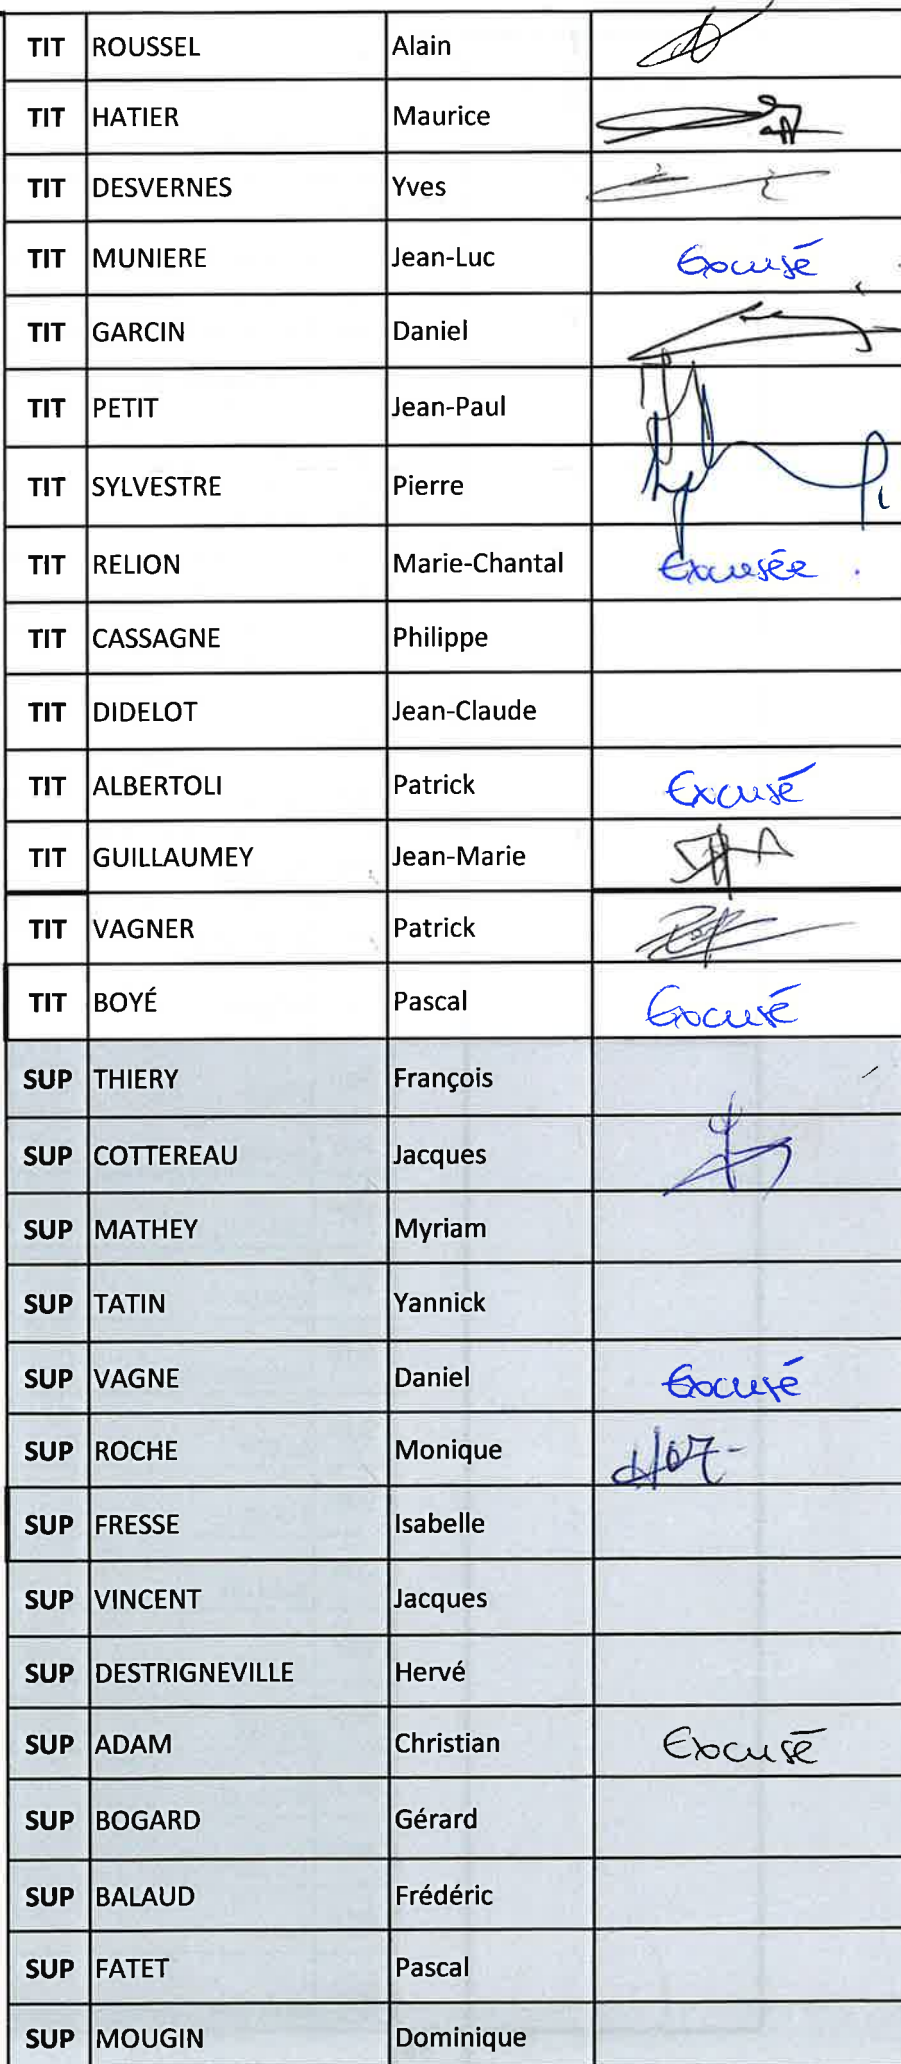 TIT ROUSSEL Alain
TIT HATIER Maurice
TIT DESVERNES Yves
TIT MUNIERE Jean-Luc Excusé
TIT GARCIN Daniel
TIT PETIT Jean-Paul
TIT SYLVESTRE Pierre
TIT RELION Marie-Chantal Excusée .
TIT CASSAGNE Philippe
TIT DIDELOT Jean-Claude
TIT ALBERTOLI Patrick Excusé
TIT GUILLAUMEY Jean-Marie
TIT VAGNER Patrick
TIT BOYÉ Pascal Excusé
SUP THIERY François
SUP COTTEREAU Jacques
SUP MATHEY Myriam
SUP TATIN Yannick
SUP VAGNE Daniel Excusé
SUP ROCHE Monique
SUP FRESSE Isabelle
SUP VINCENT Jacques
SUP DESTRIGNEVILLE Hervé
SUP ADAM Christian Excusé
SUP BOGARD Gérard
SUP BALAUD Frédéric
SUP FATET Pascal
SUP MOUGIN Dominique